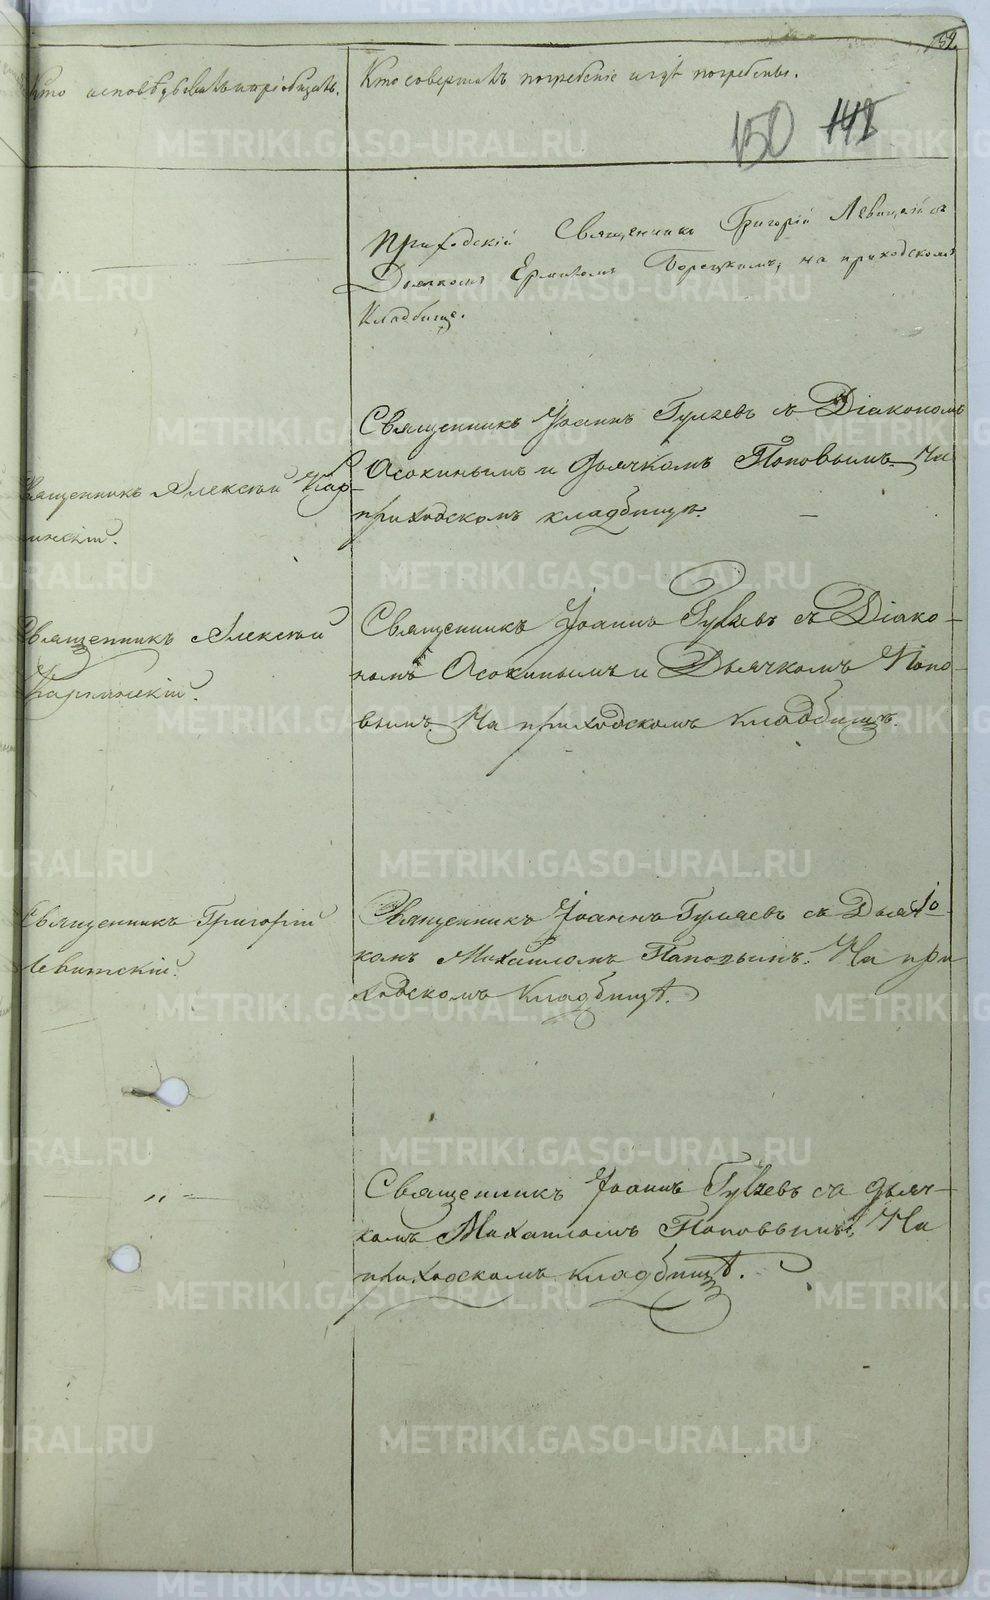 Кто исповѣдывалъ и пріобщалъ.
Кто совершалъ погребеніе и гдѣ погребены.
150 148
Приходскій Священникъ Григорій Левицкій съ
Дьячкомъ Ермиломъ Борецкимъ, на приходскомъ
Кладбище.
Священникъ Алексѣй Кар-
пинскій.
Священникъ Іоаннъ Гуляевъ съ Діакономъ
Осокинымъ и Дьячкомъ Поповымъ. На
приходскомъ кладбищѣ.
Священникъ Алексѣй
Карпинскій.
Священникъ Іоаннъ Гуляевъ съ Діако-
номъ Осокинымъ и Дьячкомъ Попо-
вымъ. На приходскомъ кладбищѣ.
Священникъ Григорій
Левитскій.
Священникъ Іоаннъ Гуляевъ съ Дьяч-
комъ Михаиломъ Поповымъ. На при
ходскомъ кладбищѣ.
Священникъ Іоаннъ Гуляевъ съ дьяч-
комъ Михаиломъ Поповымъ, На
приходскомъ кладбищѣ.
METRIKI.GASO-URAL.RU